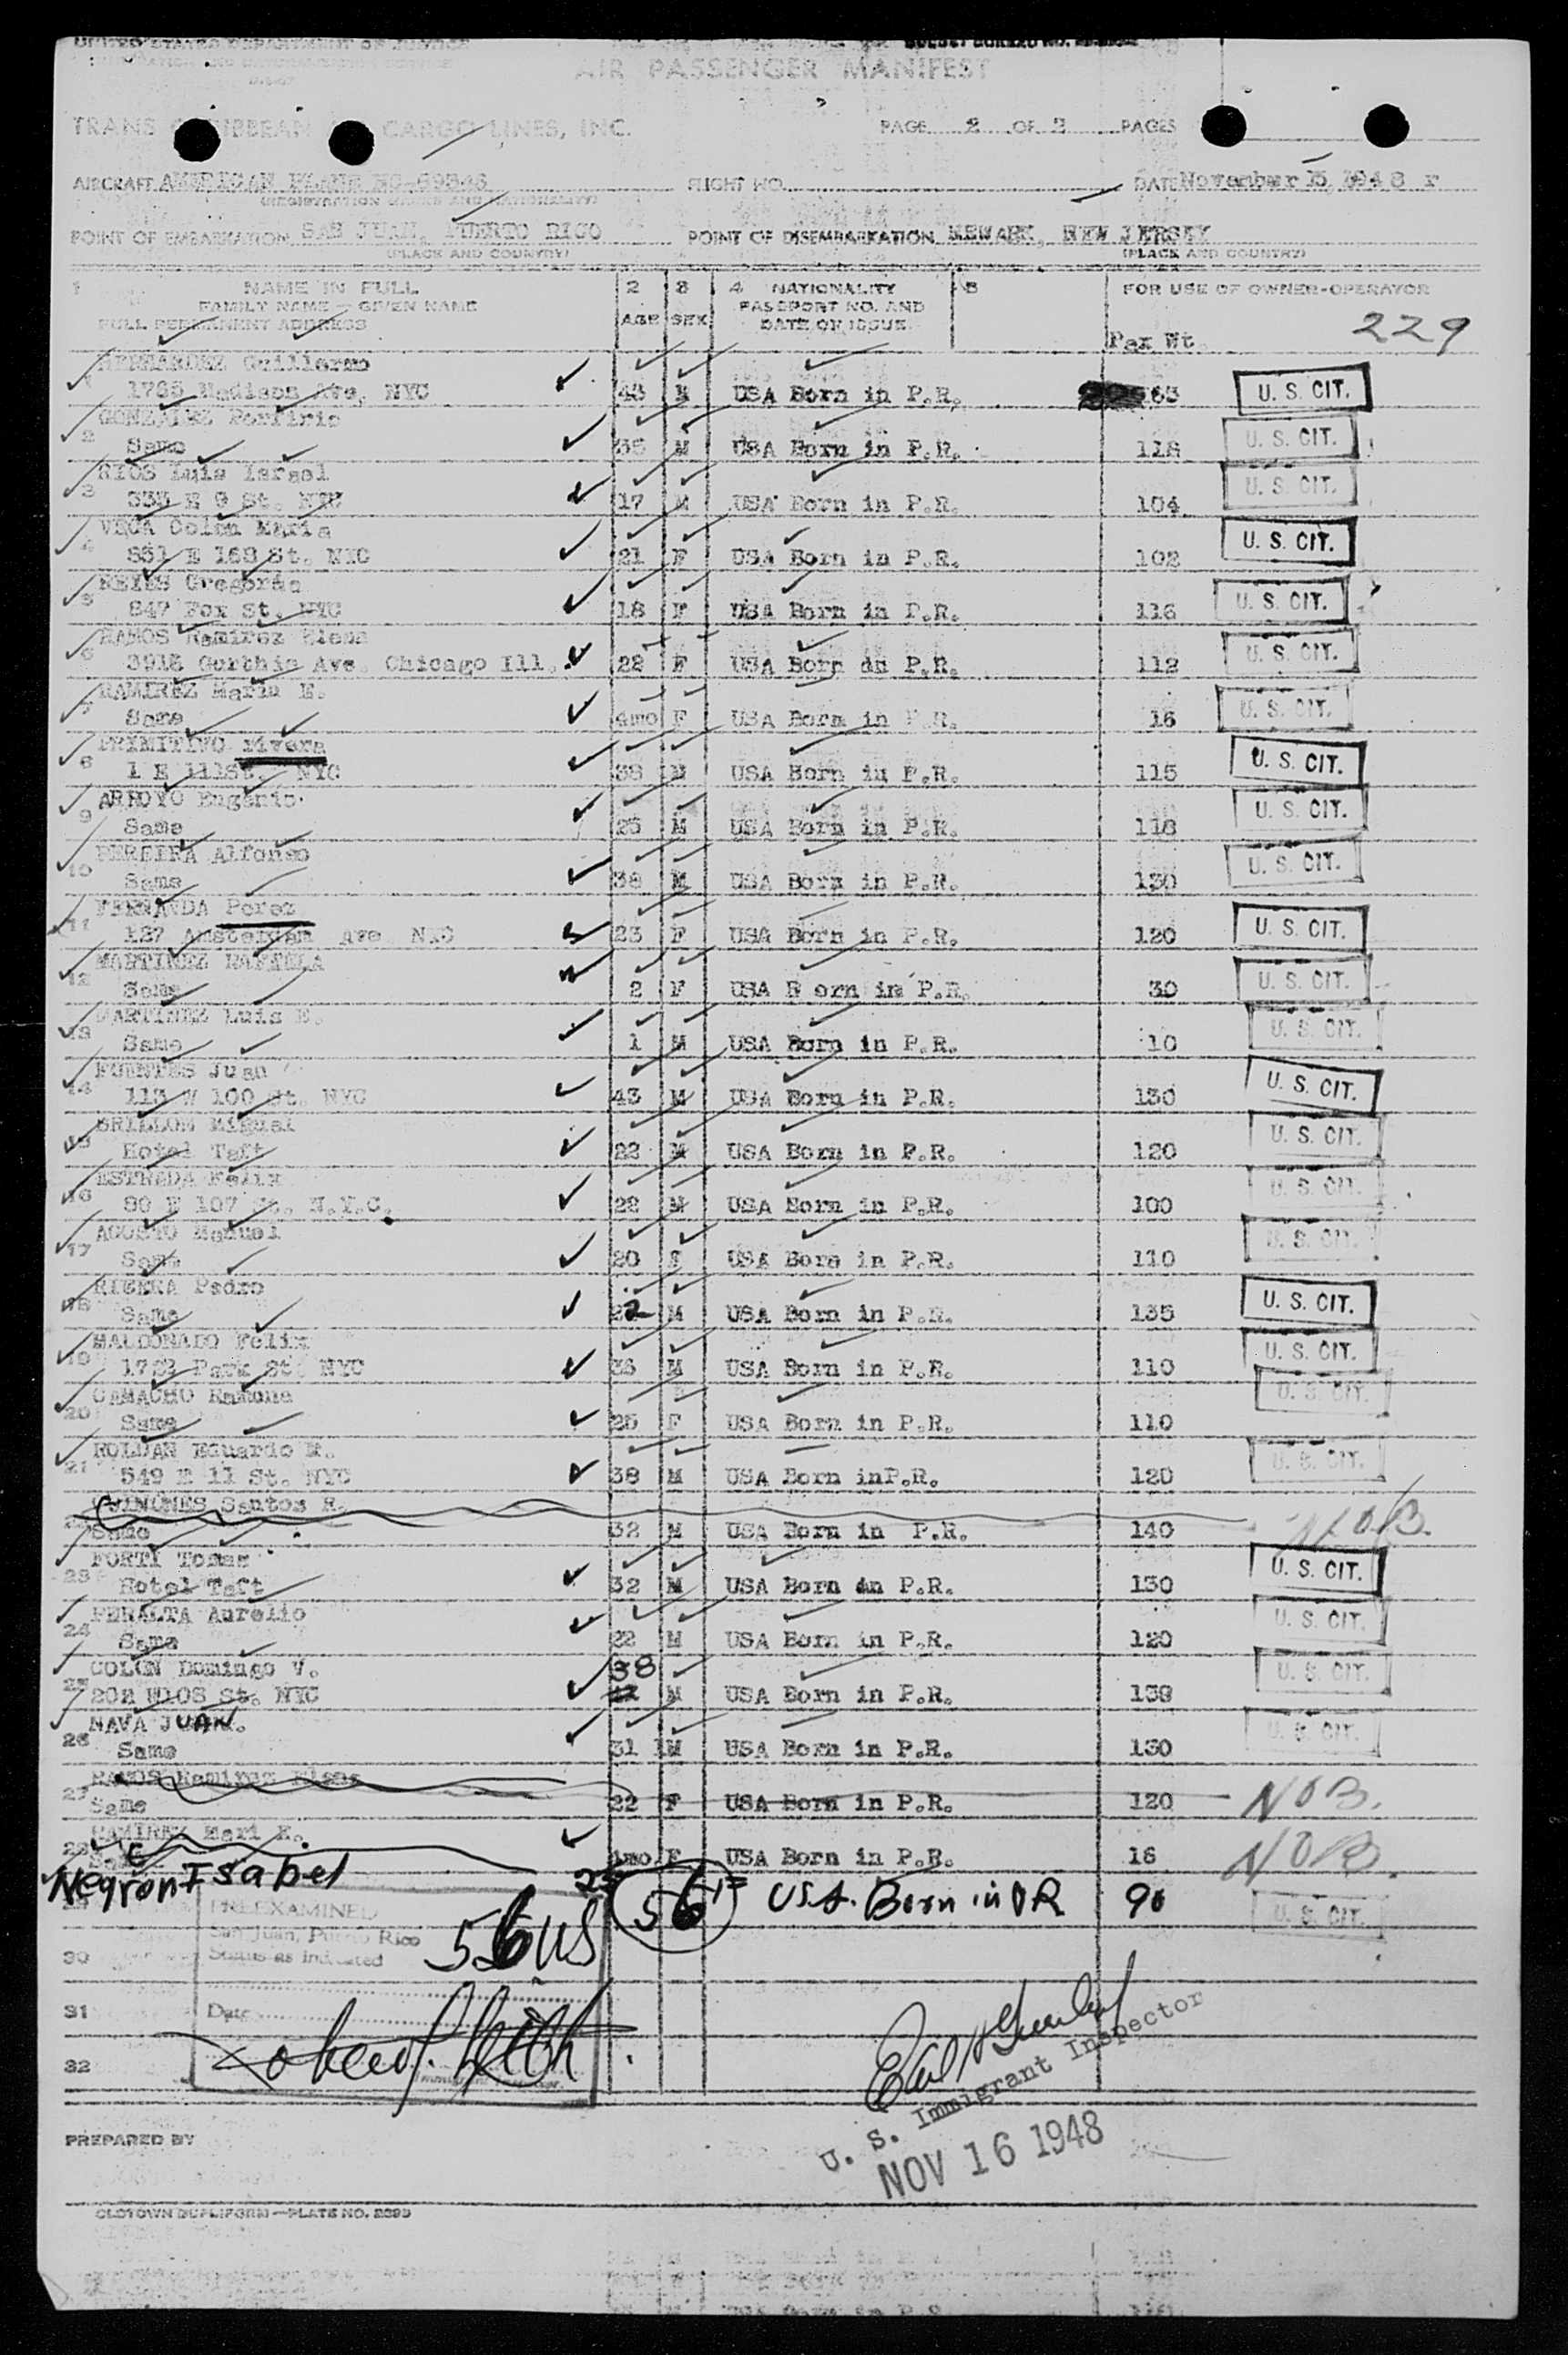 UNITED STATES DEPARTMENT OF JUSTICE
AIR PASSENGER MANIFEST
TRANS CARIBBEAN CARGO LINES, INC. PAGE 2 OF 2 PAGES
AIRCRAFT AMERICAN PLANE NO. FLIGHT NO. DATE November 15, 1948
(REGISTRATION MARKS AND NATIONALITY)
POINT OF EMBARKATION SAN JUAN, PUERTO RICO POINT OF DISEMBARKATION NEWARK, NEW JERSEY
(PLACE AND COUNTRY) (PLACE AND COUNTRY)
1 NAME IN FULL 2 3 4 NATIONALITY 5 FOR USE OF OWNER-OPERATOR
FAMILY NAME — GIVEN NAME PASSPORT NO. AND
FULL PERMANENT ADDRESS AGE SEX DATE OF ISSUE Pax Wt 229
1 HERNANDEZ Guillermo
1765 Madison Ave, NYC 43 M USA Born in P.R. 163 U. S. CIT.
2 GONZALEZ Porfirio
Same 35 M USA Born in P.R. 118 U. S. CIT.
3 RIOS Luis Israel
333 E 9 St. NYC 17 M USA Born in P.R. 104 U. S. CIT.
4 VEGA Colon Maria
851 E 163 St. NYC 21 F USA Born in P.R. 102 U. S. CIT.
5 REYES Gregoria
847 Fox St. NYC 18 F USA Born in P.R. 116 U. S. CIT.
6 RAMOS Ramirez Elena
3918 Ave. Chicago Ill. 22 F USA Born in P.R. 112 U. S. CIT.
7 RAMIREZ Maria E.
Same 4mo F USA Born in P.R. 16 U. S. CIT.
8 PRIMITIVO rivera
1 E 111St. NYC 38 M USA Born in P.R. 115 U. S. CIT.
9 ARROYO Eugenio
Same 25 M USA Born in P.R. 118 U. S. CIT.
10 PEREIRA Alfonso
Same 38 M USA Born in P.R. 130 U. S. CIT.
11 FERNANDA Perez
127 Amsterdam Ave NYC 23 F USA Born in P.R. 120 U. S. CIT.
12 MARTINEZ RAFAELA
Same 2 F USA B orn in P.R. 30 U. S. CIT.
13 MARTINEZ Luis E.
Same 1 M USA Born in P.R. 10 U. S. CIT.
14 FUENTES Juan
113 W 100 St. NYC 43 M USA Born in P.R. 130 U. S. CIT.
15 BRILLON Miguel
Hotel Taft 22 M USA Born in P.R. 120 U. S. CIT.
16 ESTRADA Felix
80 E 107 St. N.Y.C. 22 M USA Born in P.R. 100 U. S. CIT.
17 ACOSTO Manuel
Same 20 USA Born in P.R. 110 U. S. CIT.
18 RIBERA Pedro
Same 22 M USA Born in P.R. 135 U. S. CIT.
19 MALDONADO Felix
1722 Park St. NYC 36 M USA Born in P.R. 110 U. S. CIT.
20 CAMACHO Ramona
Same 25 F USA Born in P.R. 110 U. S. CIT.
21 ROLDAN Eduardo M.
549 E 11 St. NYC 38 M USA Born inP.R. 120 U. S. CIT.
22 QUINONES Santos R.
Same 32 M USA Born in P.R. 140 N.O.B.
23 FORTY Tomas
Hotel Taft 32 M USA Born in P.R. 130 U. S. CIT.
24 PERALTA Aurelio
Same 22 M USA Born in P.R. 120 U. S. CIT.
25 COLON Domingo V. 38
202 W108 St. NYC M USA Born in P.R. 138 U. S. CIT.
26 NAVA JUAN.
Same 31 M USA Born in P.R. 130 U. S. CIT.
27 RAMOS Ramirez Elena
Same 22 F USA Born in P.R. 120 NOB.
28 RAMIREZ Mari E.
Same 4mo F USA Born in P.R. 16 NOB.
Negron Isabel 23 F USA. Born in PR 90 U. S. CIT.
29 PREEXAMINED 56
San Juan, Puerto Rico
30 Status as indicated 56 US
31 Date
32
U. S. Immigrant Inspector
NOV 16 1948
PREPARED BY
CLOTOWN DUPLIFORM—PLATE NO. 2393